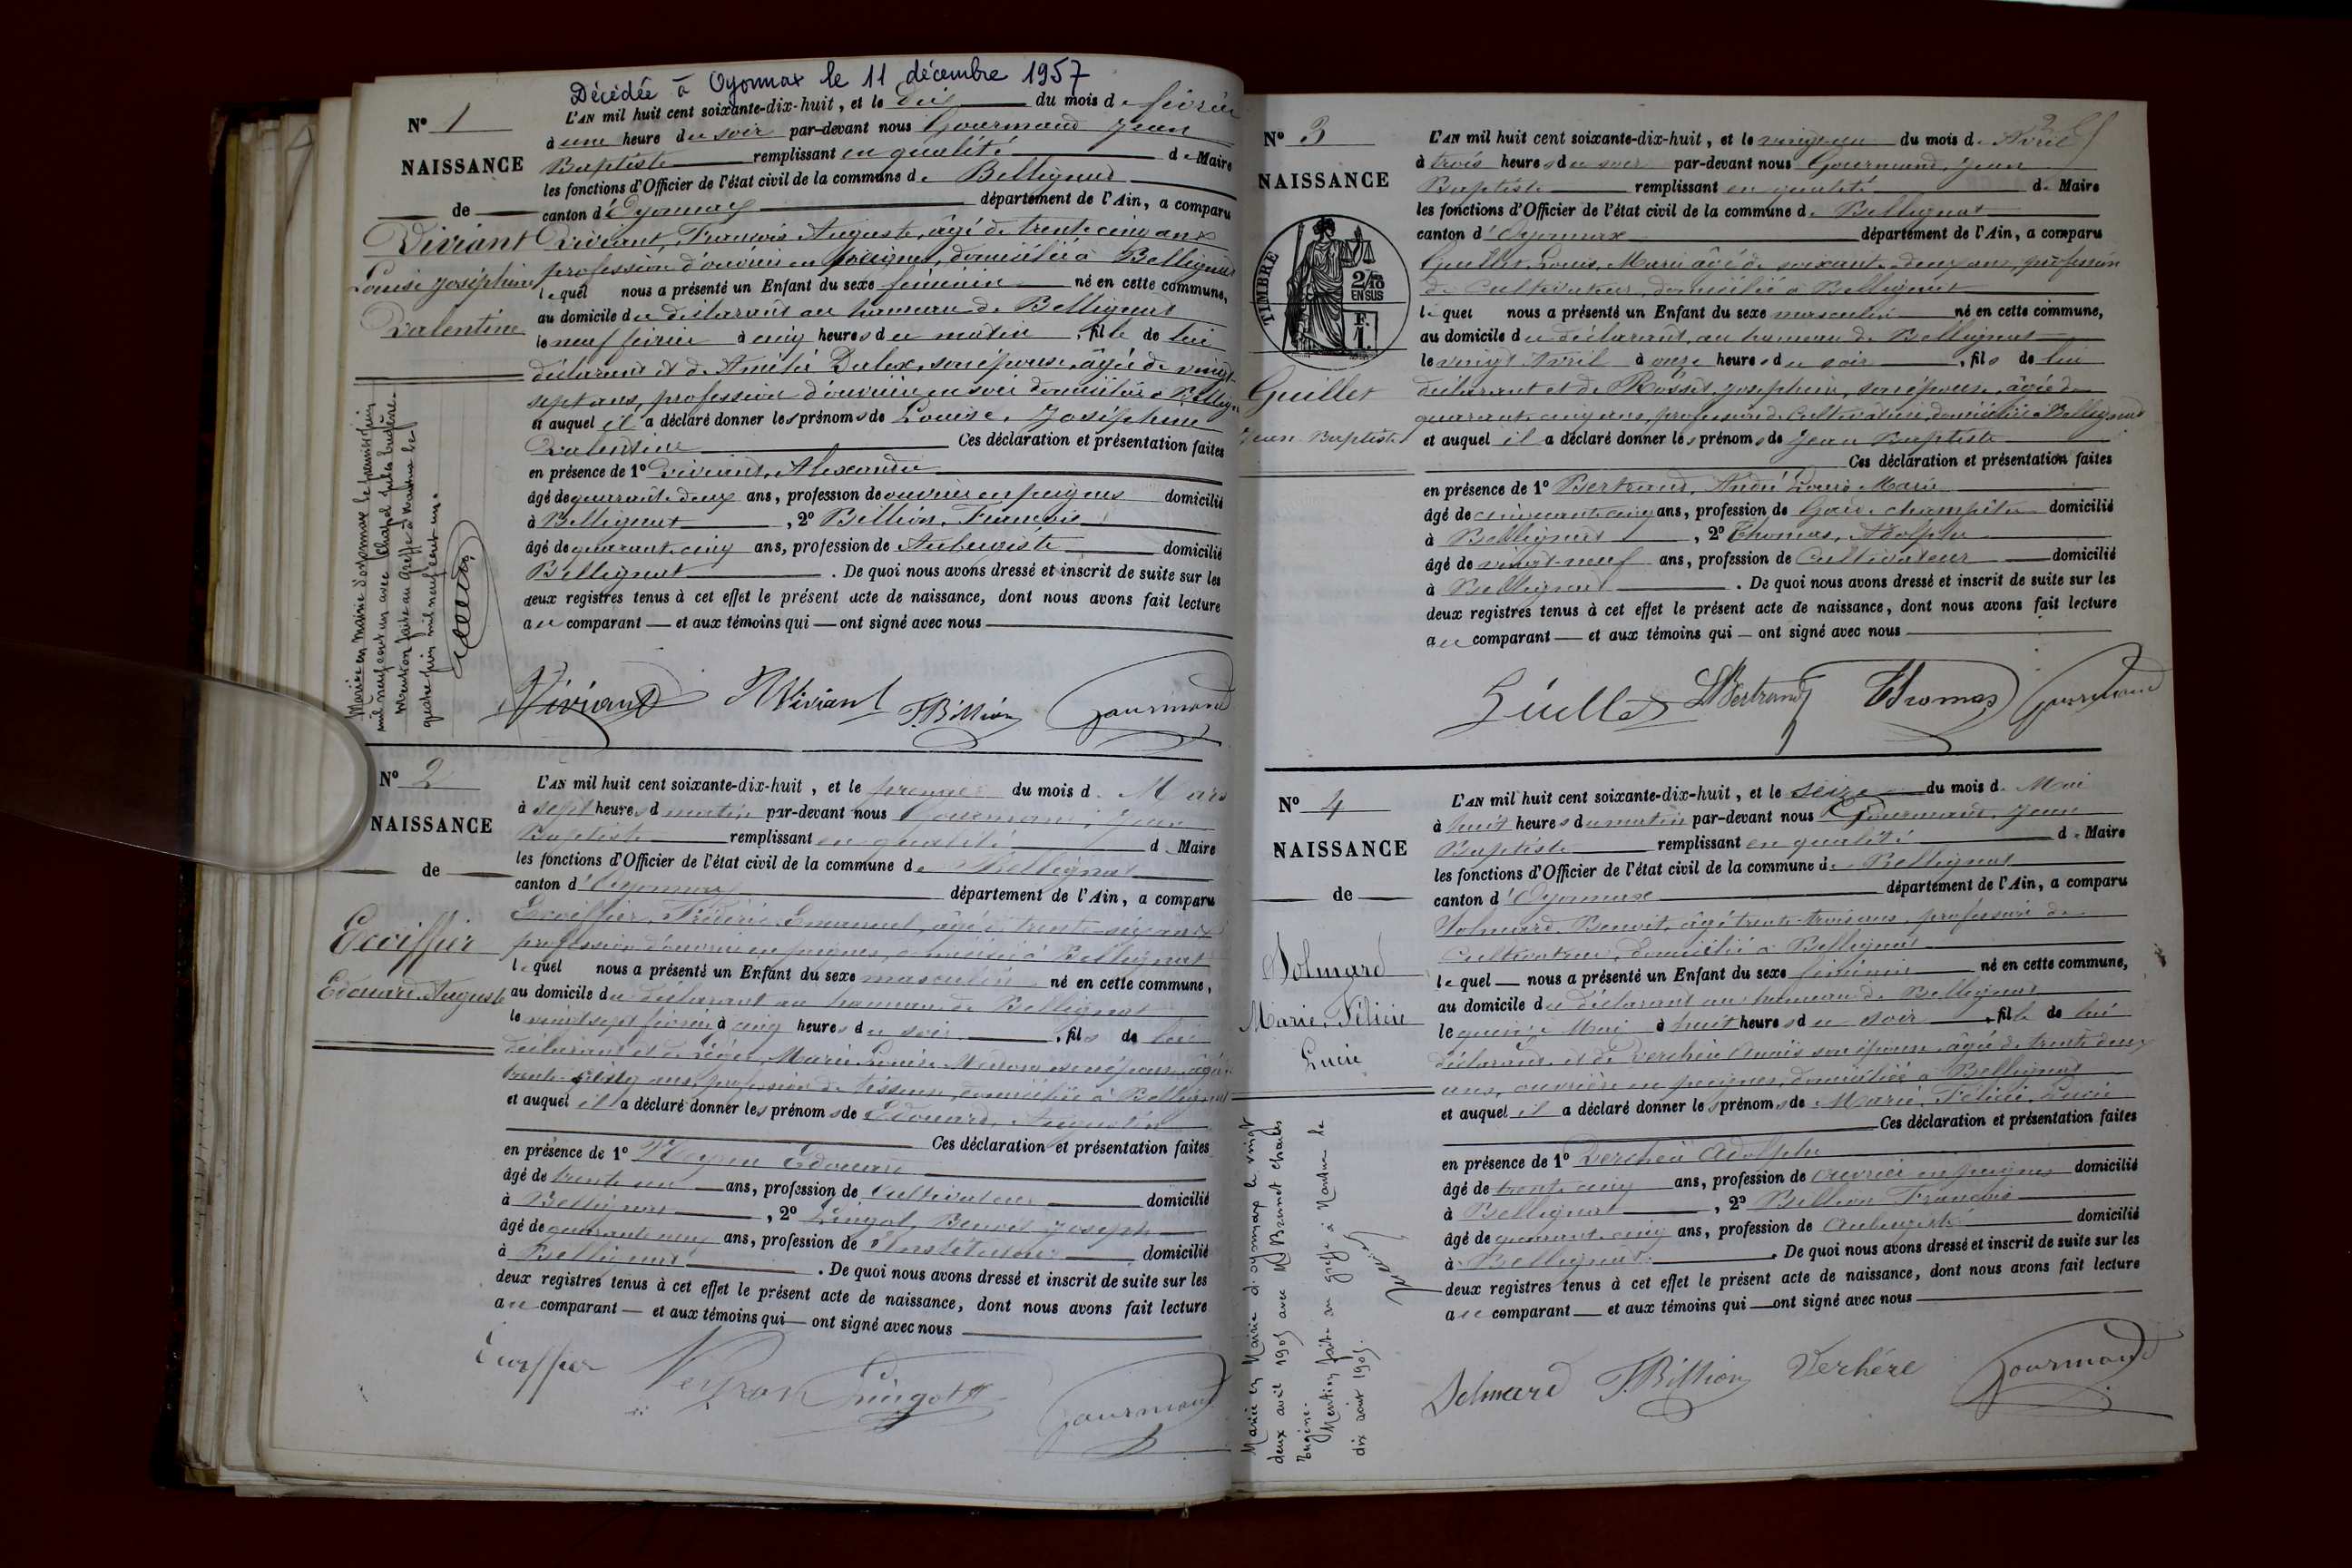 Décédée à Oyonnax le 11 décembre 1957
N° 1
NAISSANCE
de
Viviant
Louise Joséphine
Valentine
L'AN mil huit cent soixante-dix-huit, et le dix du mois de février
à une heure du soir par-devant nous Gourmand Jean
Baptiste remplissant en qualité de Maire
les fonctions d'Officier de l'état civil de la commune de Bellignat
canton d'Oyonnax département de l'Ain, a comparu
Viviant, François Auguste, âgé de trente cinq ans
profession d'ouvrier en peignes, domicilié à Bellignat
lequel nous a présenté un Enfant du sexe féminin né en cette commune,
au domicile du déclarant au hameau de Bellignat
le neuf février à cinq heures du matin, fille de lui
déclarant et de Amélie Dulex, son épouse, âgée de vingt-
sept ans, profession d'ouvrière en soie domiciliée à
et auquel il a déclaré donner les prénoms de Louise, Joséphine
Valentine Ces déclaration et présentation faites
en présence de 1° Viviant, Alexandre
âgé de quarante deux ans, profession de ouvrier en peignes domicilié
à Bellignat, 2° Billion, François
âgé de quarante cinq ans, profession de Aubergiste domicilié
Bellignat. De quoi nous avons dressé et inscrit de suite sur les
deux registres tenus à cet effet le présent acte de naissance, dont nous avons fait lecture
au comparant — et aux témoins qui — ont signé avec nous
Mariée en mairie d'oyonnax le premier juin
mil neuf cent un avec Chapel Jules Eugène.
mention faite au Greffe à Nantua le
quatre juin mil neuf cent un.
Viviand Viviant F. Billion Gourmand
N° 2
NAISSANCE
de
Excoiffier
Edouard Auguste
L'AN mil huit cent soixante-dix-huit, et le premier du mois d Mars
à sept heures d matin par-devant nous Gourmand Jean
Baptiste remplissant en qualité d Maire
les fonctions d'Officier de l'état civil de la commune de Bellignat
canton d'Oyonnax département de l'Ain, a comparu
Excoiffier, Frédéric Emanuel, âgé de trente-six ans
profession d'ouvrier en peignes, domicilié à Bellignat
lequel nous a présenté un Enfant du sexe masculin né en cette commune,
au domicile du déclarant au hameau de Bellignat
le vingt sept février à cinq heures du soir, fils de lui
déclarant et de Marie Louise son épouse, âgée
trente ans, profession de tisseuse, domiciliée à Bellignat
et auquel il a déclaré donner les prénoms de Edouard,
Ces déclaration et présentation faites
en présence de 1° Neyron Edouard
âgé de trente un ans, profession de Cultivateur domicilié
à Bellignat, 2° Lingot, Benoit Joseph
âgé de quarante neuf ans, profession de Instituteur domicilié
à Bellignat. De quoi nous avons dressé et inscrit de suite sur les
deux registres tenus à cet effet le présent acte de naissance, dont nous avons fait lecture
au comparant — et aux témoins qui — ont signé avec nous
Excoiffier Neyron Lingot Gourmand
N° 3
NAISSANCE
TIMBRE
2/10
EN SUS
F.
1.
Guillet
Jean Baptiste
L'AN mil huit cent soixante-dix-huit, et le vingt-un du mois d. Avril
à trois heures du soir par-devant nous Gourmand, Jean
Baptiste remplissant en qualité de Maire
les fonctions d'Officier de l'état civil de la commune de Bellignat
canton d'Oyonnax département de l'Ain, a comparu
Guillet, Louis, Marie âgé de soixante-deux ans, profession
de Cultivateur, domicilié à Bellignat
lequel nous a présenté un Enfant du sexe masculin né en cette commune,
au domicile du déclarant, au hameau de Bellignat
le vingt Avril à onze heures du soir, fils de lui
déclarant et de Rosset, Josephine, son épouse, âgée de
quarante cinq ans, profession de Cultivatrice, domiciliée à Bellignat
et auquel il a déclaré donner les prénoms de Jean Baptiste
Ces déclaration et présentation faites
en présence de 1° Bertrand, André Louis Marie
âgé de cinquante cinq ans, profession de Garde champêtre domicilié
à Bellignat, 2° Thomas, Adolphe
âgé de vingt-neuf ans, profession de Cultivateur domicilié
à Bellignat. De quoi nous avons dressé et inscrit de suite sur les
deux registres tenus à cet effet le présent acte de naissance, dont nous avons fait lecture
au comparant — et aux témoins qui — ont signé avec nous
Guillet Bertrand Thomas Gourmand
N° 4
NAISSANCE
de
Solmard
Marie, Félicie
Lucie
L'AN mil huit cent soixante-dix-huit, et le seize du mois d. Mai
à huit heures du matin par-devant nous Gourmand, Jean
Baptiste remplissant en qualité de Maire
les fonctions d'Officier de l'état civil de la commune de Bellignat
canton d'Oyonnax département de l'Ain, a comparu
Solmard, Benoit, âgé trente-trois ans, profession de
Cultivateur, domicilié à Bellignat
lequel — nous a présenté un Enfant du sexe féminin né en cette commune,
au domicile du déclarant au hameau de Bellignat
le quinze Mai à huit heures du soir, fille de lui
déclarant, et de Verchère Anaïs son épouse âgée de trente deux
ans, ouvrière en peignes, domiciliée à Bellignat
et auquel il a déclaré donner les prénoms de Marie, Félicie, Lucie
Ces déclaration et présentation faites
en présence de 1° Verchère Adolphe
âgé de trente cinq ans, profession de ouvrier en peignes domicilié
à Bellignat, 2° Billion François
âgé de quarante cinq ans, profession de Aubergiste domicilié
à Bellignat. De quoi nous avons dressé et inscrit de suite sur les
deux registres tenus à cet effet le présent acte de naissance, dont nous avons fait lecture
au comparant — et aux témoins qui — ont signé avec nous
Mariée en Mairie d'oyonnax le vingt
deux avril 1905 avec Brunet Charles
Eugène.
Mention faite au greffe à Nantua le
dix août 1905.
Solmard F. Billion Verchère Gourmand